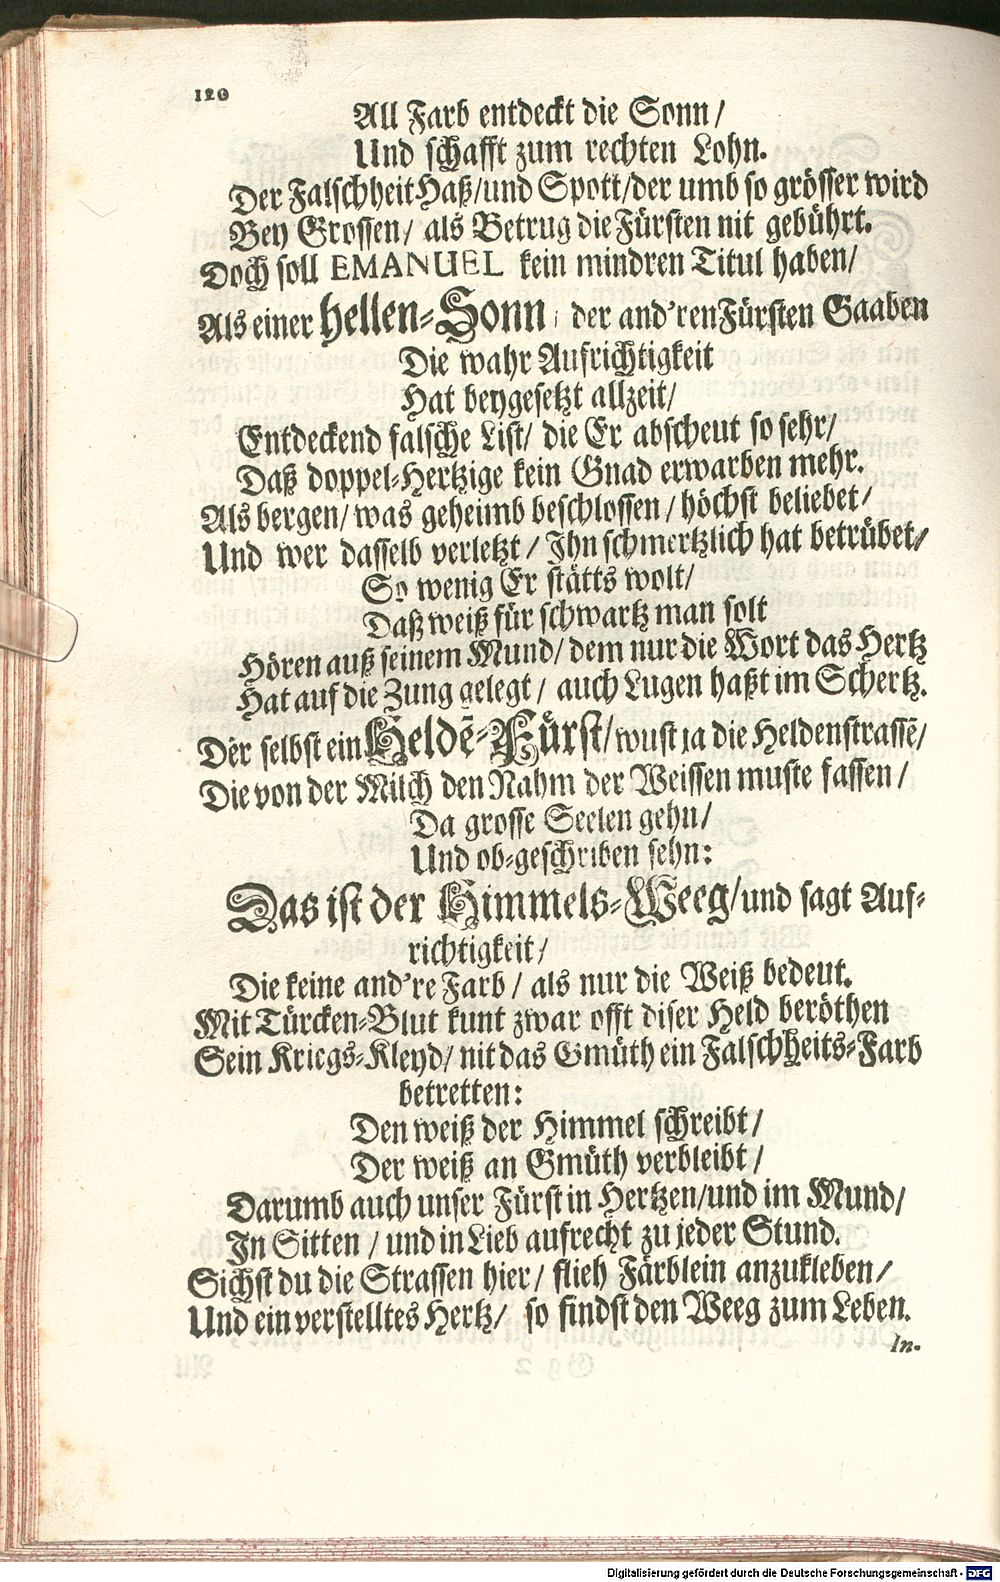 120
All Farb entdeckt die Sonn /
Und schafft zum rechten Lohn.
Der Falschheit Haß / und Spott / der umb so grösser wird
Bey Grossen / als Betrug die Fürsten nit gebührt.
Doch soll EMANUEL kein mindren Titul haben /
Als einer hellen-Sonn, der and'ren Fürsten Gaaben
Die wahr Aufrichtigkeit
Hat beygesetzt allzeit /
Entdeckend falsche List / die Er abscheut so sehr /
Daß doppel-Hertzige kein Gnad erwarben mehr.
Als bergen / was geheimb beschlossen / höchst beliebet /
Und wer dasselb verletzt / Ihn schmertzlich hat betrübet /
So wenig Er stätts wolt /
Daß weiß für schwartz man solt
Hören auß seinem Mund / dem nur die Wort das Hertz
Hat auf die Zung gelegt / auch Lugen haßt im Schertz.
Der selbst ein Heldē-Fürst / wust ja die Heldenstrassē /
Die von der Milch den Nahm der Weissen muste fassen /
Da grosse Seelen gehn /
Und ob-geschriben sehn:
Das ist der Himmels-Weeg / und sagt Auf-
richtigkeit /
Die keine and're Farb / als nur die Weiß bedeut.
Mit Türcken-Blut kunt zwar offt diser Held beröthen
Sein Kriegs-Kleyd / nit das Gmüth ein Falschheits-Farb
betretten:
Den weiß der Himmel schreibt /
Der weiß an Gmüth verbleibt /
Darumb auch unser Fürst in Hertzen / und im Mund /
In Sitten / und in Lieb aufrecht zu jeder Stund.
Sichst du die Strassen hier / flieh Färblein anzukleben /
Und ein verstelltes Hertz / so findst den Weeg zum Leben.
In-
Digitalisierung gefördert durch die Deutsche Forschungsgemeinschaft - DFG